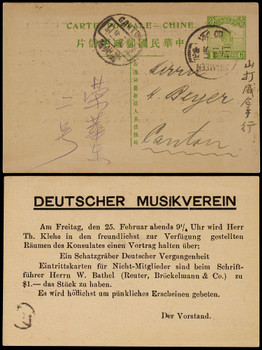 CARTE POSTALE — CHINE.
中華民國郵政明信片
CANTON
Herrn
Beyer
Canton
DEUTSCHER MUSIKVEREIN
Am Freitag, den 25. Februar abends 9¼ Uhr wird Herr
Th. Klehs in den freundlichst zur Verfügung gestellten
Räumen des Konsulates einen Vortrag halten über:
Ein Schatzgräber Deutscher Vergangenheit
Eintrittskarten für Nicht-Mitglieder sind beim Schrift-
führer Herrn W. Bathel (Reuter, Brückelmann & Co.) zu
$1.— das Stück zu haben.
Es wird höflichst um pünkliches Erscheinen gebeten.
Der Vorstand.